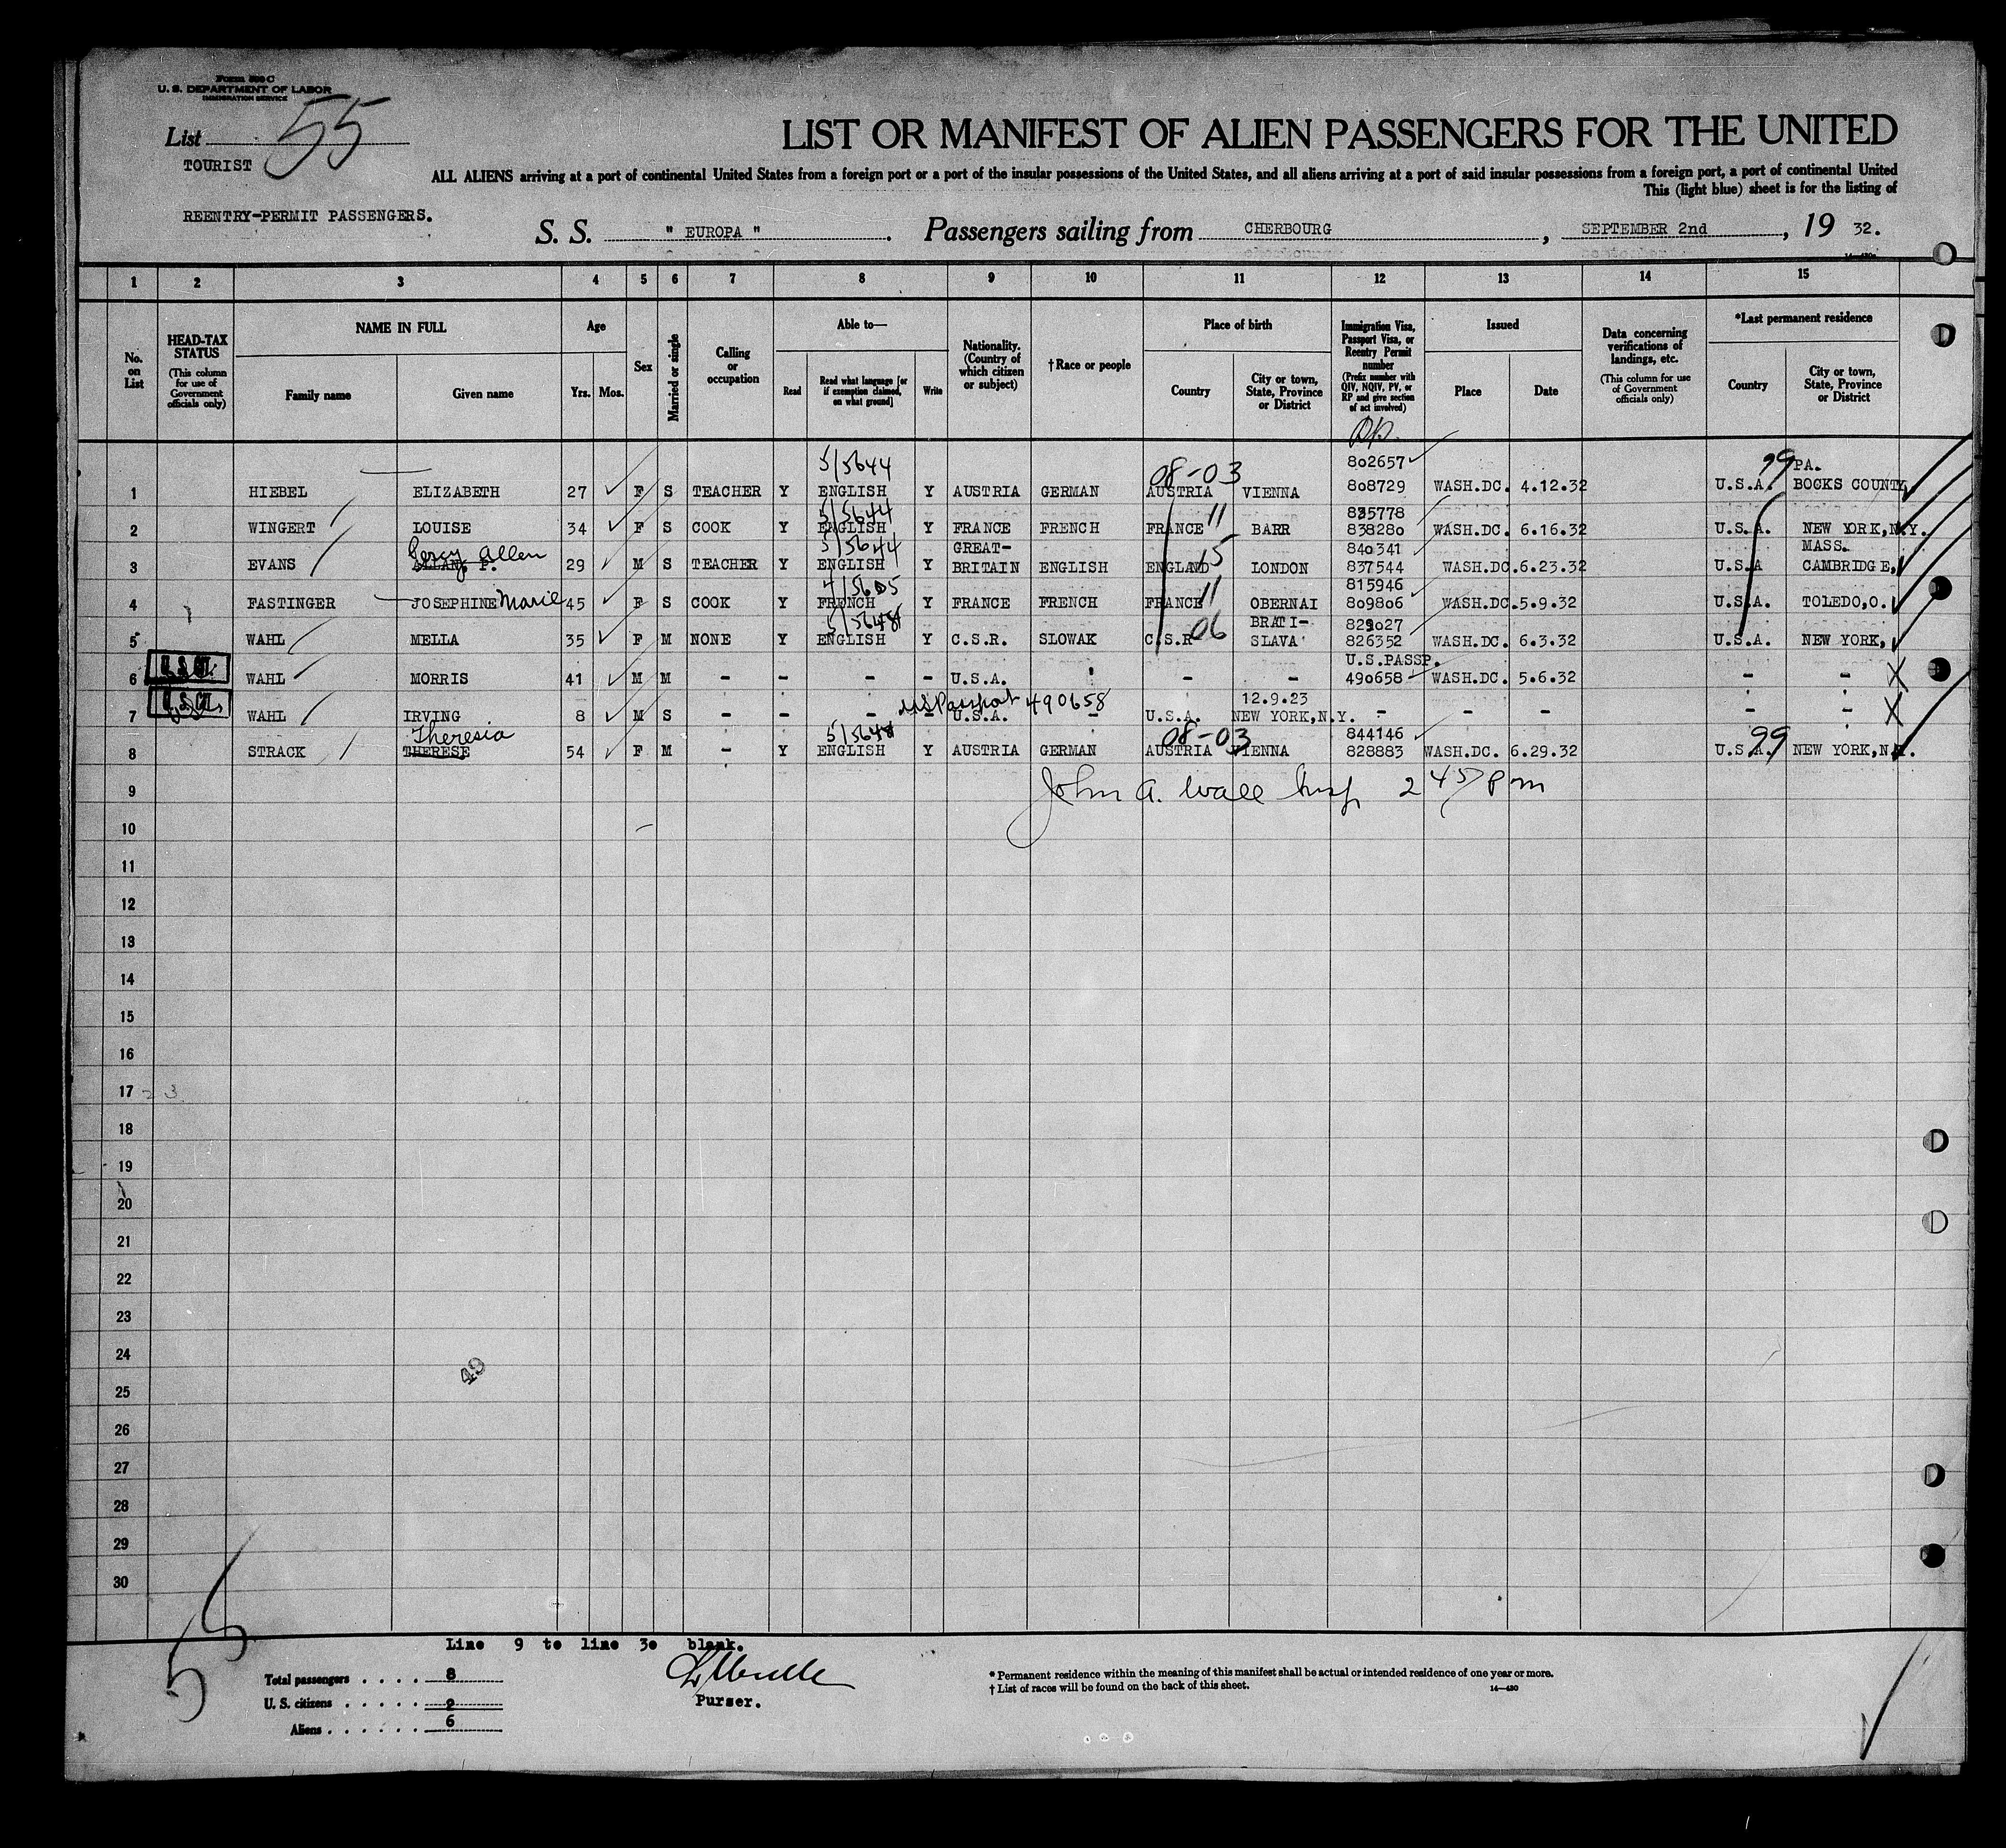 Form 500 C
U. S. DEPARTMENT OF LABOR
IMMIGRATION SERVICE
List 55
TOURIST
LIST OR MANIFEST OF ALIEN PASSENGERS FOR THE UNITED
ALL ALIENS arriving at a port of continental United States from a foreign port or a port of the insular possessions of the United States, and all aliens arriving at a port of said insular possessions from a foreign port, a port of continental United
This (light blue) sheet is for the listing of
REENTRY-PERMIT PASSENGERS.
S. S. " EUROPA ". Passengers sailing from CHERBOURG, SEPTEMBER 2nd, 19 32.
1 2 3 4 5 6 7 8 9 10 11 12 13 14 15
No. on List
HEAD-TAX STATUS (This column for use of Government officials only)
NAME IN FULL
Family name
Given name
Age
Yrs. Mos.
Sex
Married or single
Calling or occupation
Able to—
Read
Read what language [or if exemption claimed, on what ground]
Write
Nationality. (Country of which citizen or subject)
† Race or people
Place of birth
Country
City or town, State, Province or District
Immigration Visa, Passport Visa, or Reentry Permit number (Prefix number with QIV, NQIV, PV, or RP and give section of act involved)
Issued
Place
Date
Data concerning verifications of landings, etc. (This column for use of Government officials only)
*Last permanent residence
Country
City or town, State, Province or District
5/5644 08-03 802657 99 PA.
1 HIEBEL ELIZABETH 27 F S TEACHER Y ENGLISH Y AUSTRIA GERMAN AUSTRIA VIENNA 808729 WASH.DC. 4.12.32 U.S.A. BOCKS COUNTY,
5/5644 11 835778
2 WINGERT LOUISE 34 F S COOK Y ENGLISH Y FRANCE FRENCH FRANCE BARR 838280 WASH.DC. 6.16.32 U.S.A. NEW YORK,N.Y.
Percy Allen 5/5644 GREAT- 15 840341 MASS.
3 EVANS ALLAN, P. 29 M S TEACHER Y ENGLISH Y BRITAIN ENGLISH ENGLAND LONDON 837544 WASH.DC. 6.23.32 U.S.A CAMBRIDGE,
4/5605 11 815946
4 FASTINGER JOSEPHINE Marie 45 F S COOK Y FRENCH Y FRANCE FRENCH FRANCE OBERNAI 809806 WASH.DC. 5.9.32 U.S.A. TOLEDO,O.
5/5648 06 BRATI- 829027
5 WAHL MELLA 35 F M NONE Y ENGLISH Y C.S.R. SLOWAK C.S.R SLAVA 826352 WASH.DC. 6.3.32 U.S.A. NEW YORK,
U.S.PASSP.
6 WAHL MORRIS 41 M M - - - - U.S.A. - - 490658 WASH.DC. 5.6.32 - - X
US Passport 490658 12.9.23
7 WAHL IRVING 8 M S - - - - U.S.A. - U.S.A. NEW YORK,N.Y. - - - - - X
Theresia 5/5648 08-03 844146 99
8 STRACK THERESE 54 F M - Y ENGLISH Y AUSTRIA GERMAN AUSTRIA VIENNA 828883 WASH.DC. 6.29.32 U.S.A. NEW YORK,N.Y.
9 John A. Wall Insp 2 45 pm
10
11
12
13
14
15
16
17
18
19
20
21
22
23
24
49
25
26
27
28
29
30
55
Line 9 to line 30 blank.
Total passengers . . . . 8
U. S. citizens . . . . . 2
Aliens . . . . . . 6
Purser.
* Permanent residence within the meaning of this manifest shall be actual or intended residence of one year or more.
† List of races will be found on the back of this sheet.
14—430